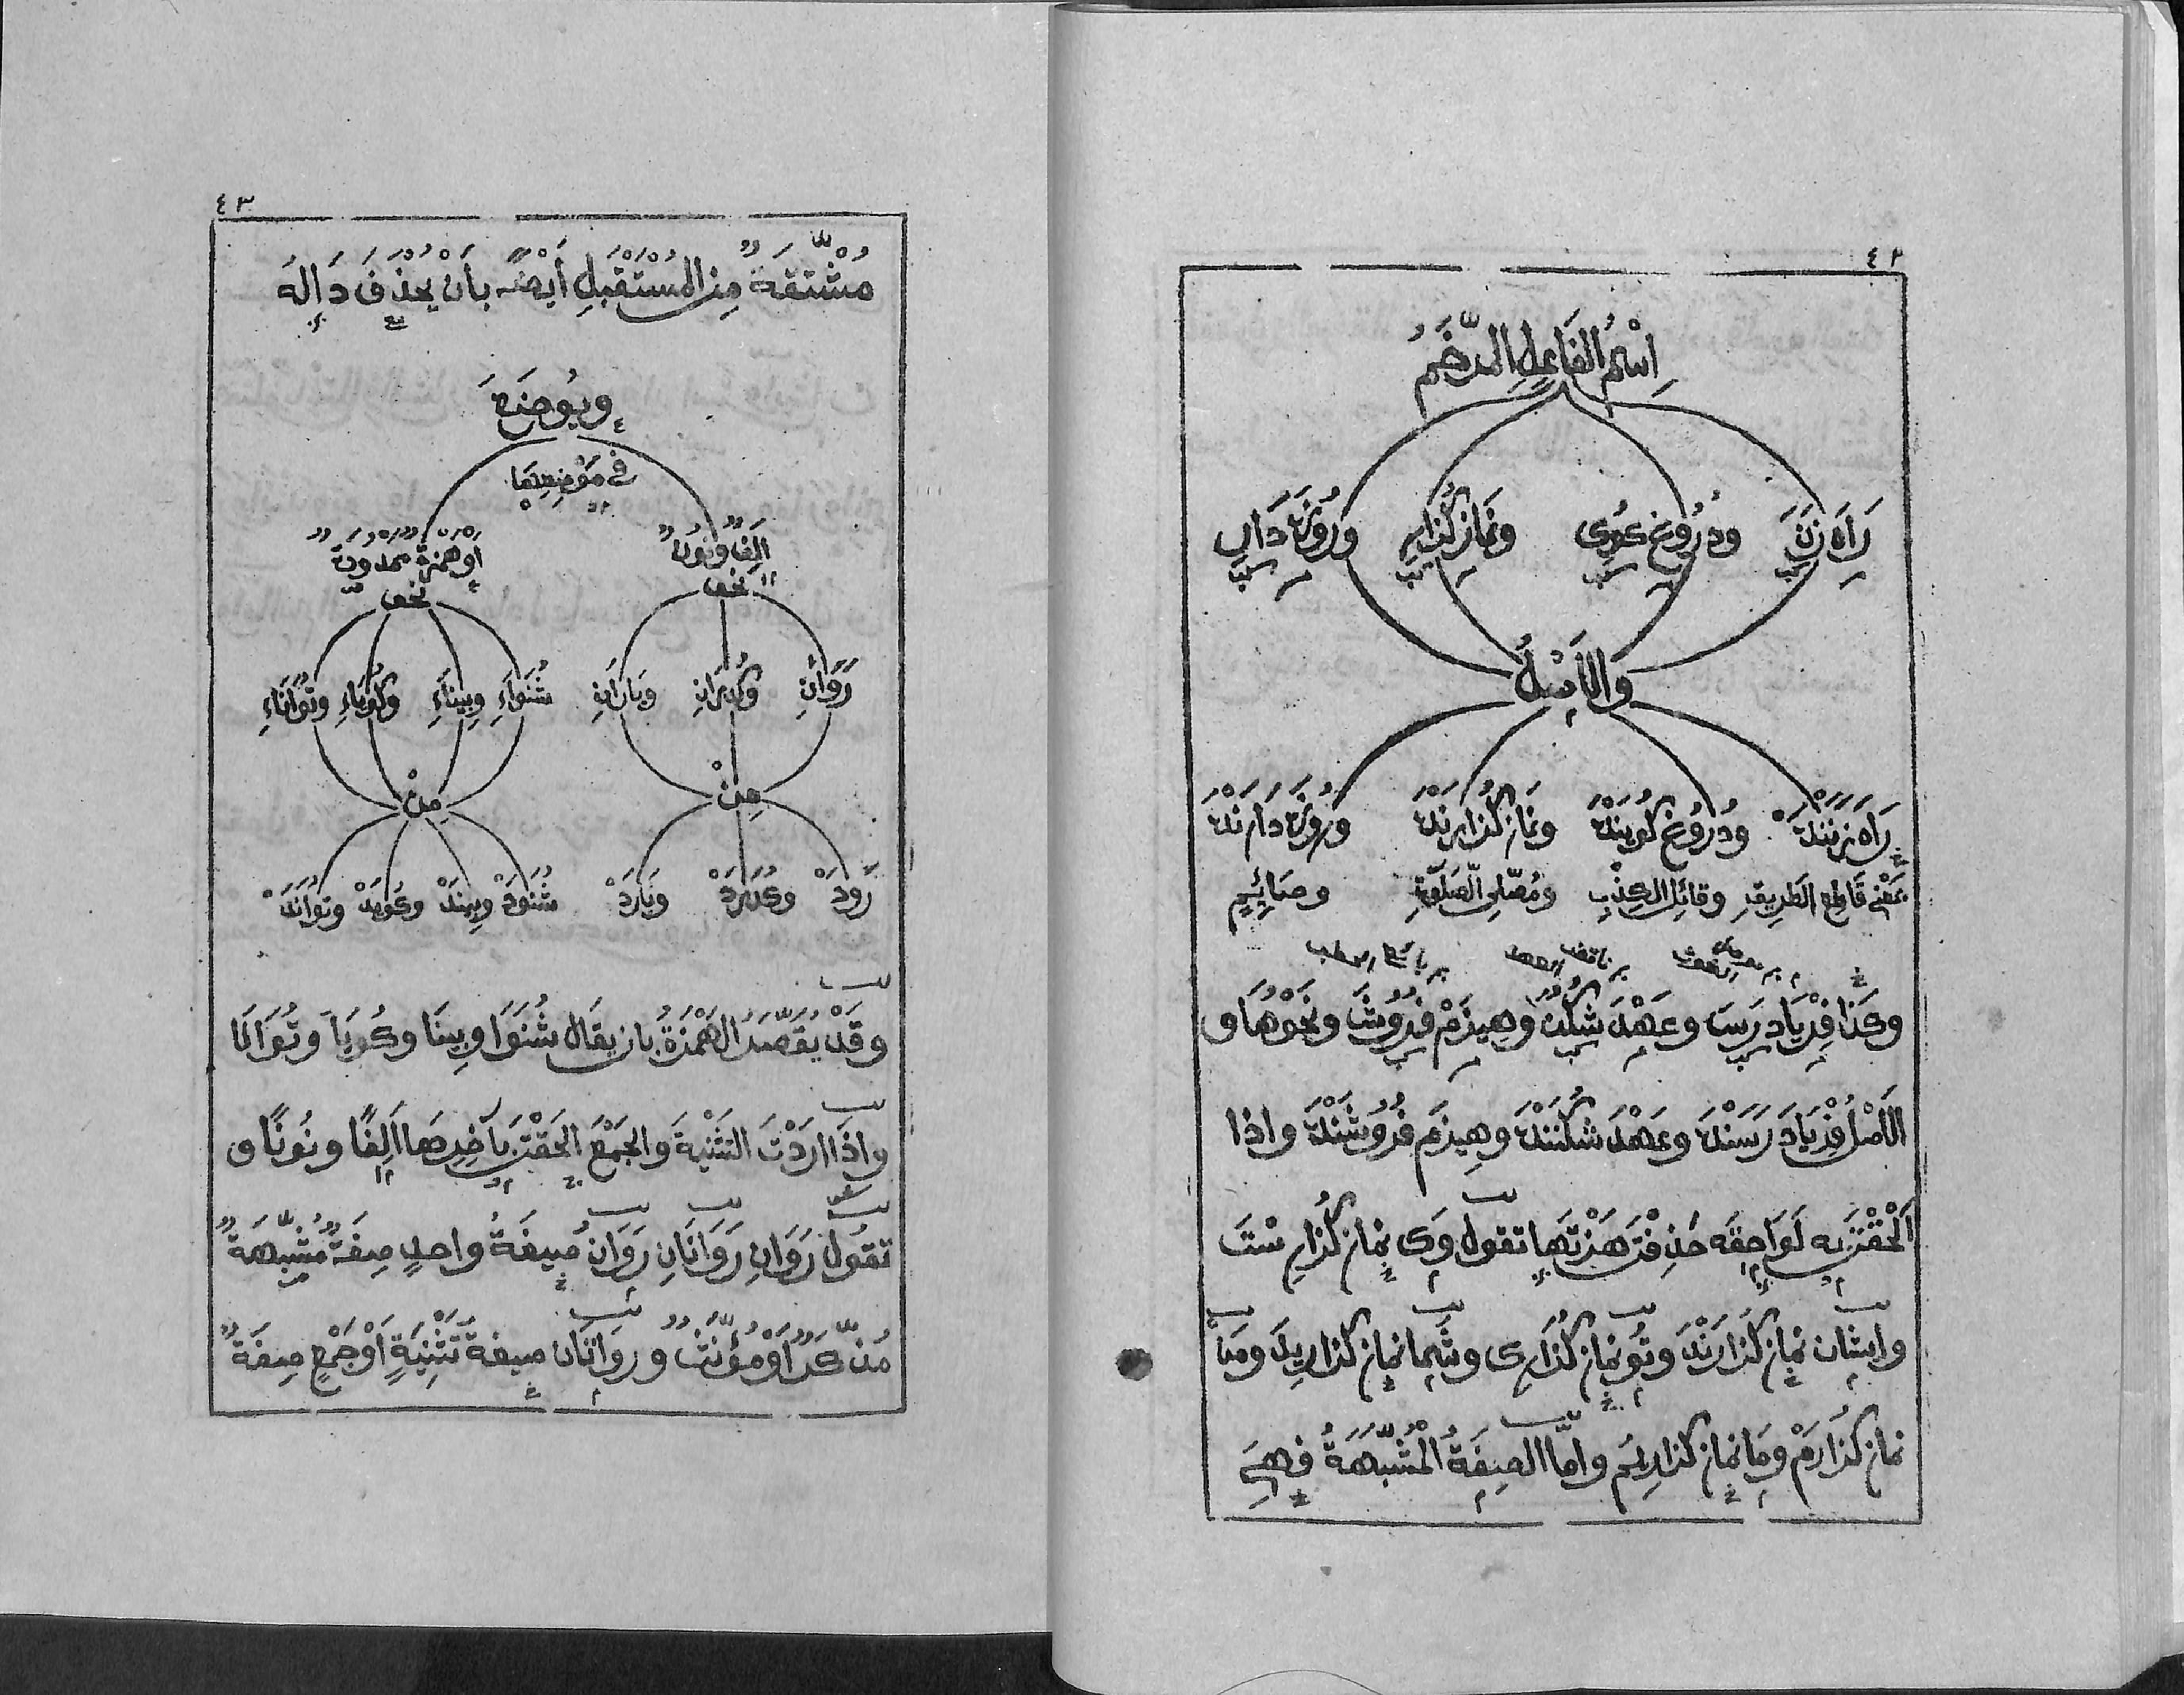 ٤٢
اِسْمُ الفَاعِلِ المرَخَّمُ
رَاه زَنَ ودُرُوغ كوى ونَماز كُذار ورُوزَه دَار
والأَصْلُ
رَاه زنَنْدَه ودُرُوغ كُوينْدَه ونَماز كُذارنْدَه ورُوزَه دَارنْدَه
بمَعْنى قَاطِع الطَرِيقِ وقائِل الكِذْبِ ومُصَلِّى الصَّلَوةِ وصَائِمٍ
وكَذا فِرْيَاد رَسَ وعَهْد شِكَن وهِيزَمْ فرُوشَ ونَحْوُهَا و
الأَصْلُ فِرْيَاد رَسَنْدَه وعَهْد شكَنَنْدَه وهِيزَم فرُوشَنْدَه واذا
اَلْحَقْتَ بِه لَوَاحِقَه حَذفْتَ هَمْزتَها تقول وَى نماز كُذارسْتَ
وايشان نماز كُذارَنْدَ وتُو نماز كُذارى وشُما نماز كذاريد ومَنْ
نماز كُذارَمْ ومَا نماز كذاريم وامَّا الصِفَةُ الْمُشَبَّهَةُ فهِىَ
٤٣
مُشْتَقَّةٌ مِن المُسْتَقْبَلِ أَيْضًا بأَنْ يُحْذَفَ دَالُه
ويُوضَعَ
فى مَوْضِعِهَا
اَلِفٌ ونُونٌ اَوْ هَمْزَةٌ مَمدُودَةٌ
نحو نحو
رَوَانِ وكُذرَانِ وبَارَانِ شُنَواءِ وبِيناءِ وكُويَاءِ وتُوَانَاءِ
مِنْ مِنْ
رَوَدْ وكُذَرَدْ وبَارَدْ شُنَوَدْ وبِينَدْ وكُويَدْ وتُوَانَدْ
وقَدْ يُقَصَّرُ الهَمْزَةُ بان يقَال شُنَوَا وبِينَا وكُويَا وتُوَانَا
وإذَا اَرَدْتَ التَثْنِيةَ والجَمْعَ اَلحَقْتَ بآخِرِهَا اَلِفًا ونُونًا و
تقُولُ رَوَانِ رَوَانَانِ رَوَان صِيغَةُ واحدٍ صِفَةٌ مُشَبَّهَةٌ
مُذَكَّرٌ اَوْ مُؤَنَّثٌ ورَوَانَان صِيغةُ تَثْنِيَةٍ اَوْ جَمْعٍ صِفَةٌ